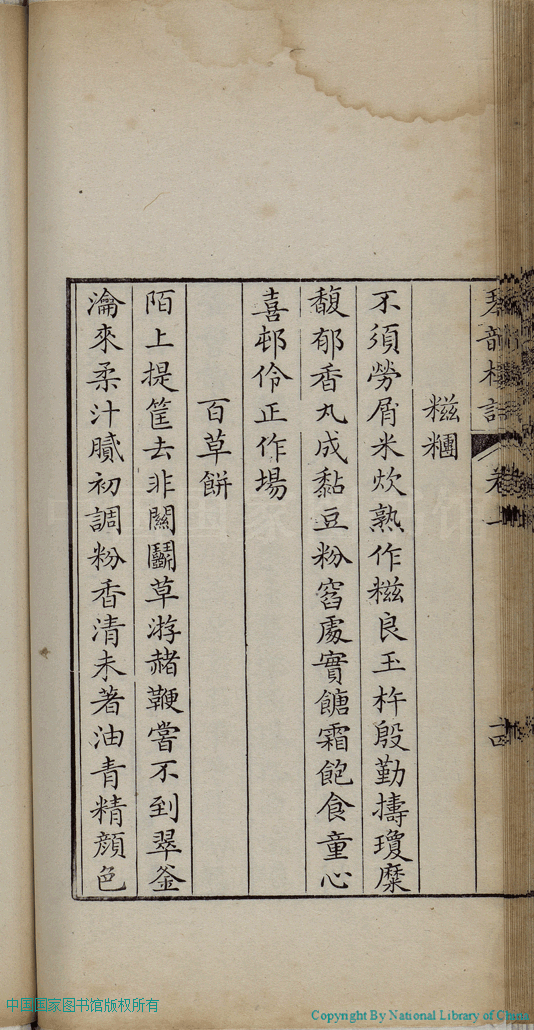 音
卷
十四
糍糰
不須勞屑米炊熟作糍良玉杵殷勤擣瓊糜
馥郁香丸成黏豆粉窞處實餹霜飽食童心
喜邨伶正作場
百草餅
陌上提筐去非關鬭草游赭鞭嘗不到翠釜
瀹來柔汁膩初調粉香清未著油青精顏色
中国国家图书馆版权所有
Copyright By National Library of China